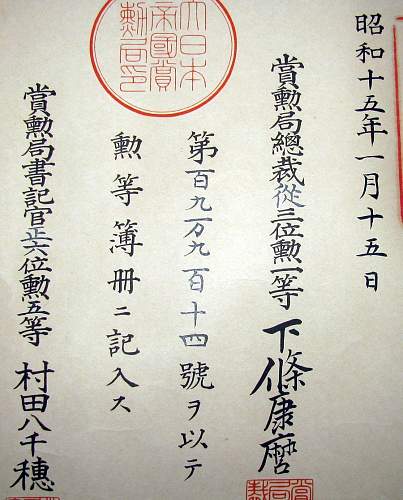 昭和十五年一月十五日
賞勳局總裁從三位勳一等 下條康麿
大日本
帝國賞
勳局印
第百九万九百十四號ヲ以テ
勳等簿冊ニ記入ス
賞勳局書記官正六位勳五等 村田八千穗